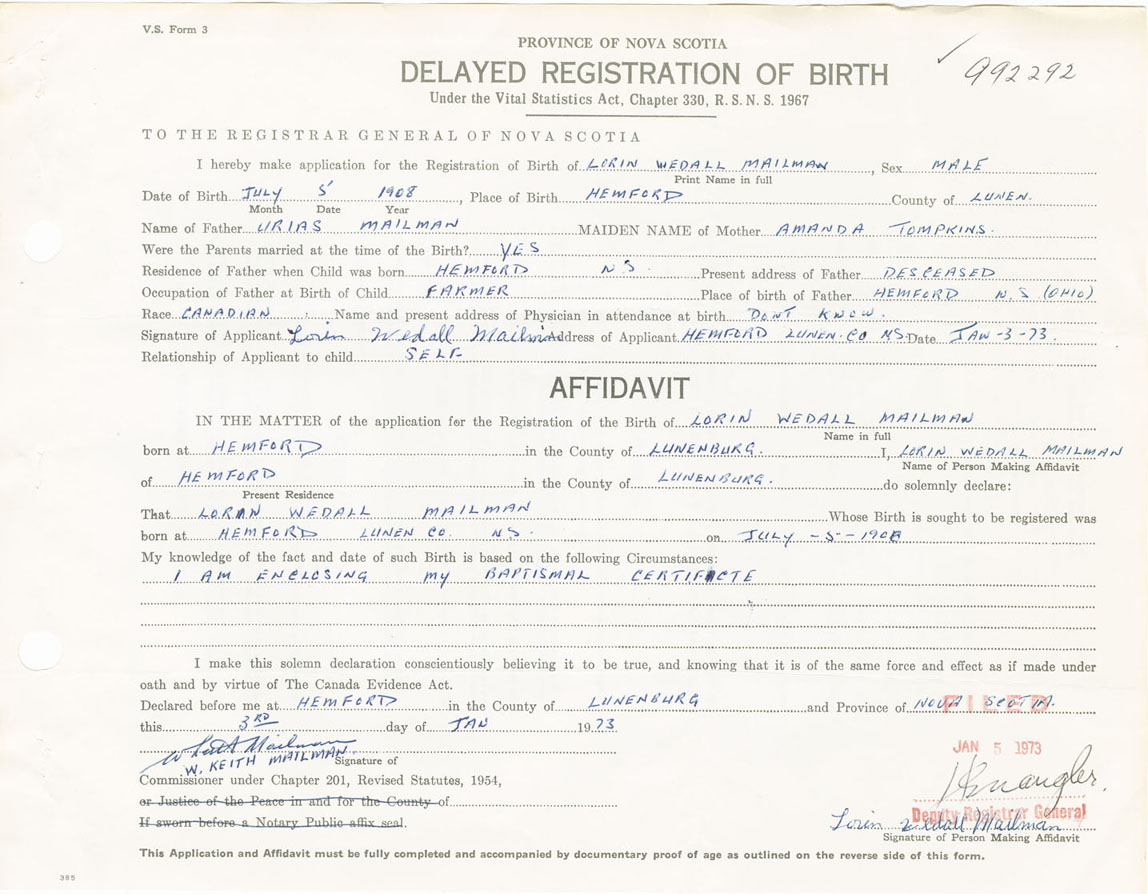 V.S. Form 3
PROVINCE OF NOVA SCOTIA
992292
DELAYED REGISTRATION OF BIRTH
Under the Vital Statistics Act, Chapter 330, R. S. N. S. 1967
TO THE REGISTRAR GENERAL OF NOVA SCOTIA
I hereby make application for the Registration of Birth of LORIN WEDALL MAILMAN, Sex MALE
Print Name in full
Date of Birth JULY 5 1908, Place of Birth HEMFORD County of LUNEN.
Month Date Year
Name of Father URIAS MAILMAN MAIDEN NAME of Mother AMANDA TOMPKINS.
Were the Parents married at the time of the Birth? YES
Residence of Father when Child was born HEMFORD NS. Present address of Father DESCEASED
Occupation of Father at Birth of Child FARMER Place of birth of Father HEMFORD N.S (OHIO)
Race CANADIAN Name and present address of Physician in attendance at birth DONT KNOW.
Signature of Applicant Lorin Wedall Mailman Address of Applicant HEMFORD LUNEN. CO NS. Date JAN-3-73.
Relationship of Applicant to child SELF
AFFIDAVIT
IN THE MATTER of the application for the Registration of the Birth of LORIN WEDALL MAILMAN
Name in full
born at HEMFORD in the County of LUNENBURG. I, LORIN WEDALL MAILMAN
Name of Person Making Affidavit
of HEMFORD in the County of LUNENBURG. do solemnly declare:
Present Residence
That LORIN WEDALL MAILMAN Whose Birth is sought to be registered was
born at HEMFORD LUNEN CO. NS. on JULY -5-1908
My knowledge of the fact and date of such Birth is based on the following Circumstances:
I AM ENCLOSING MY BAPTISMAL CERTIFICTE
I make this solemn declaration conscientiously believing it to be true, and knowing that it is of the same force and effect as if made under
oath and by virtue of The Canada Evidence Act.
Declared before me at HEMFORD in the County of LUNENBURG and Province of NOVA SCOTIA.
FILED
this 3RD day of JAN 1973
JAN 5 1973
W Keith Mailman
W. KEITH MAILMAN. Signature of
Commissioner under Chapter 201, Revised Statutes, 1954,
or Justice of the Peace in and for the County of
Deputy Registrar General
If sworn before a Notary Public affix seal.
Lorin Wedall Mailman
Signature of Person Making Affidavit
This Application and Affidavit must be fully completed and accompanied by documentary proof of age as outlined on the reverse side of this form.
385